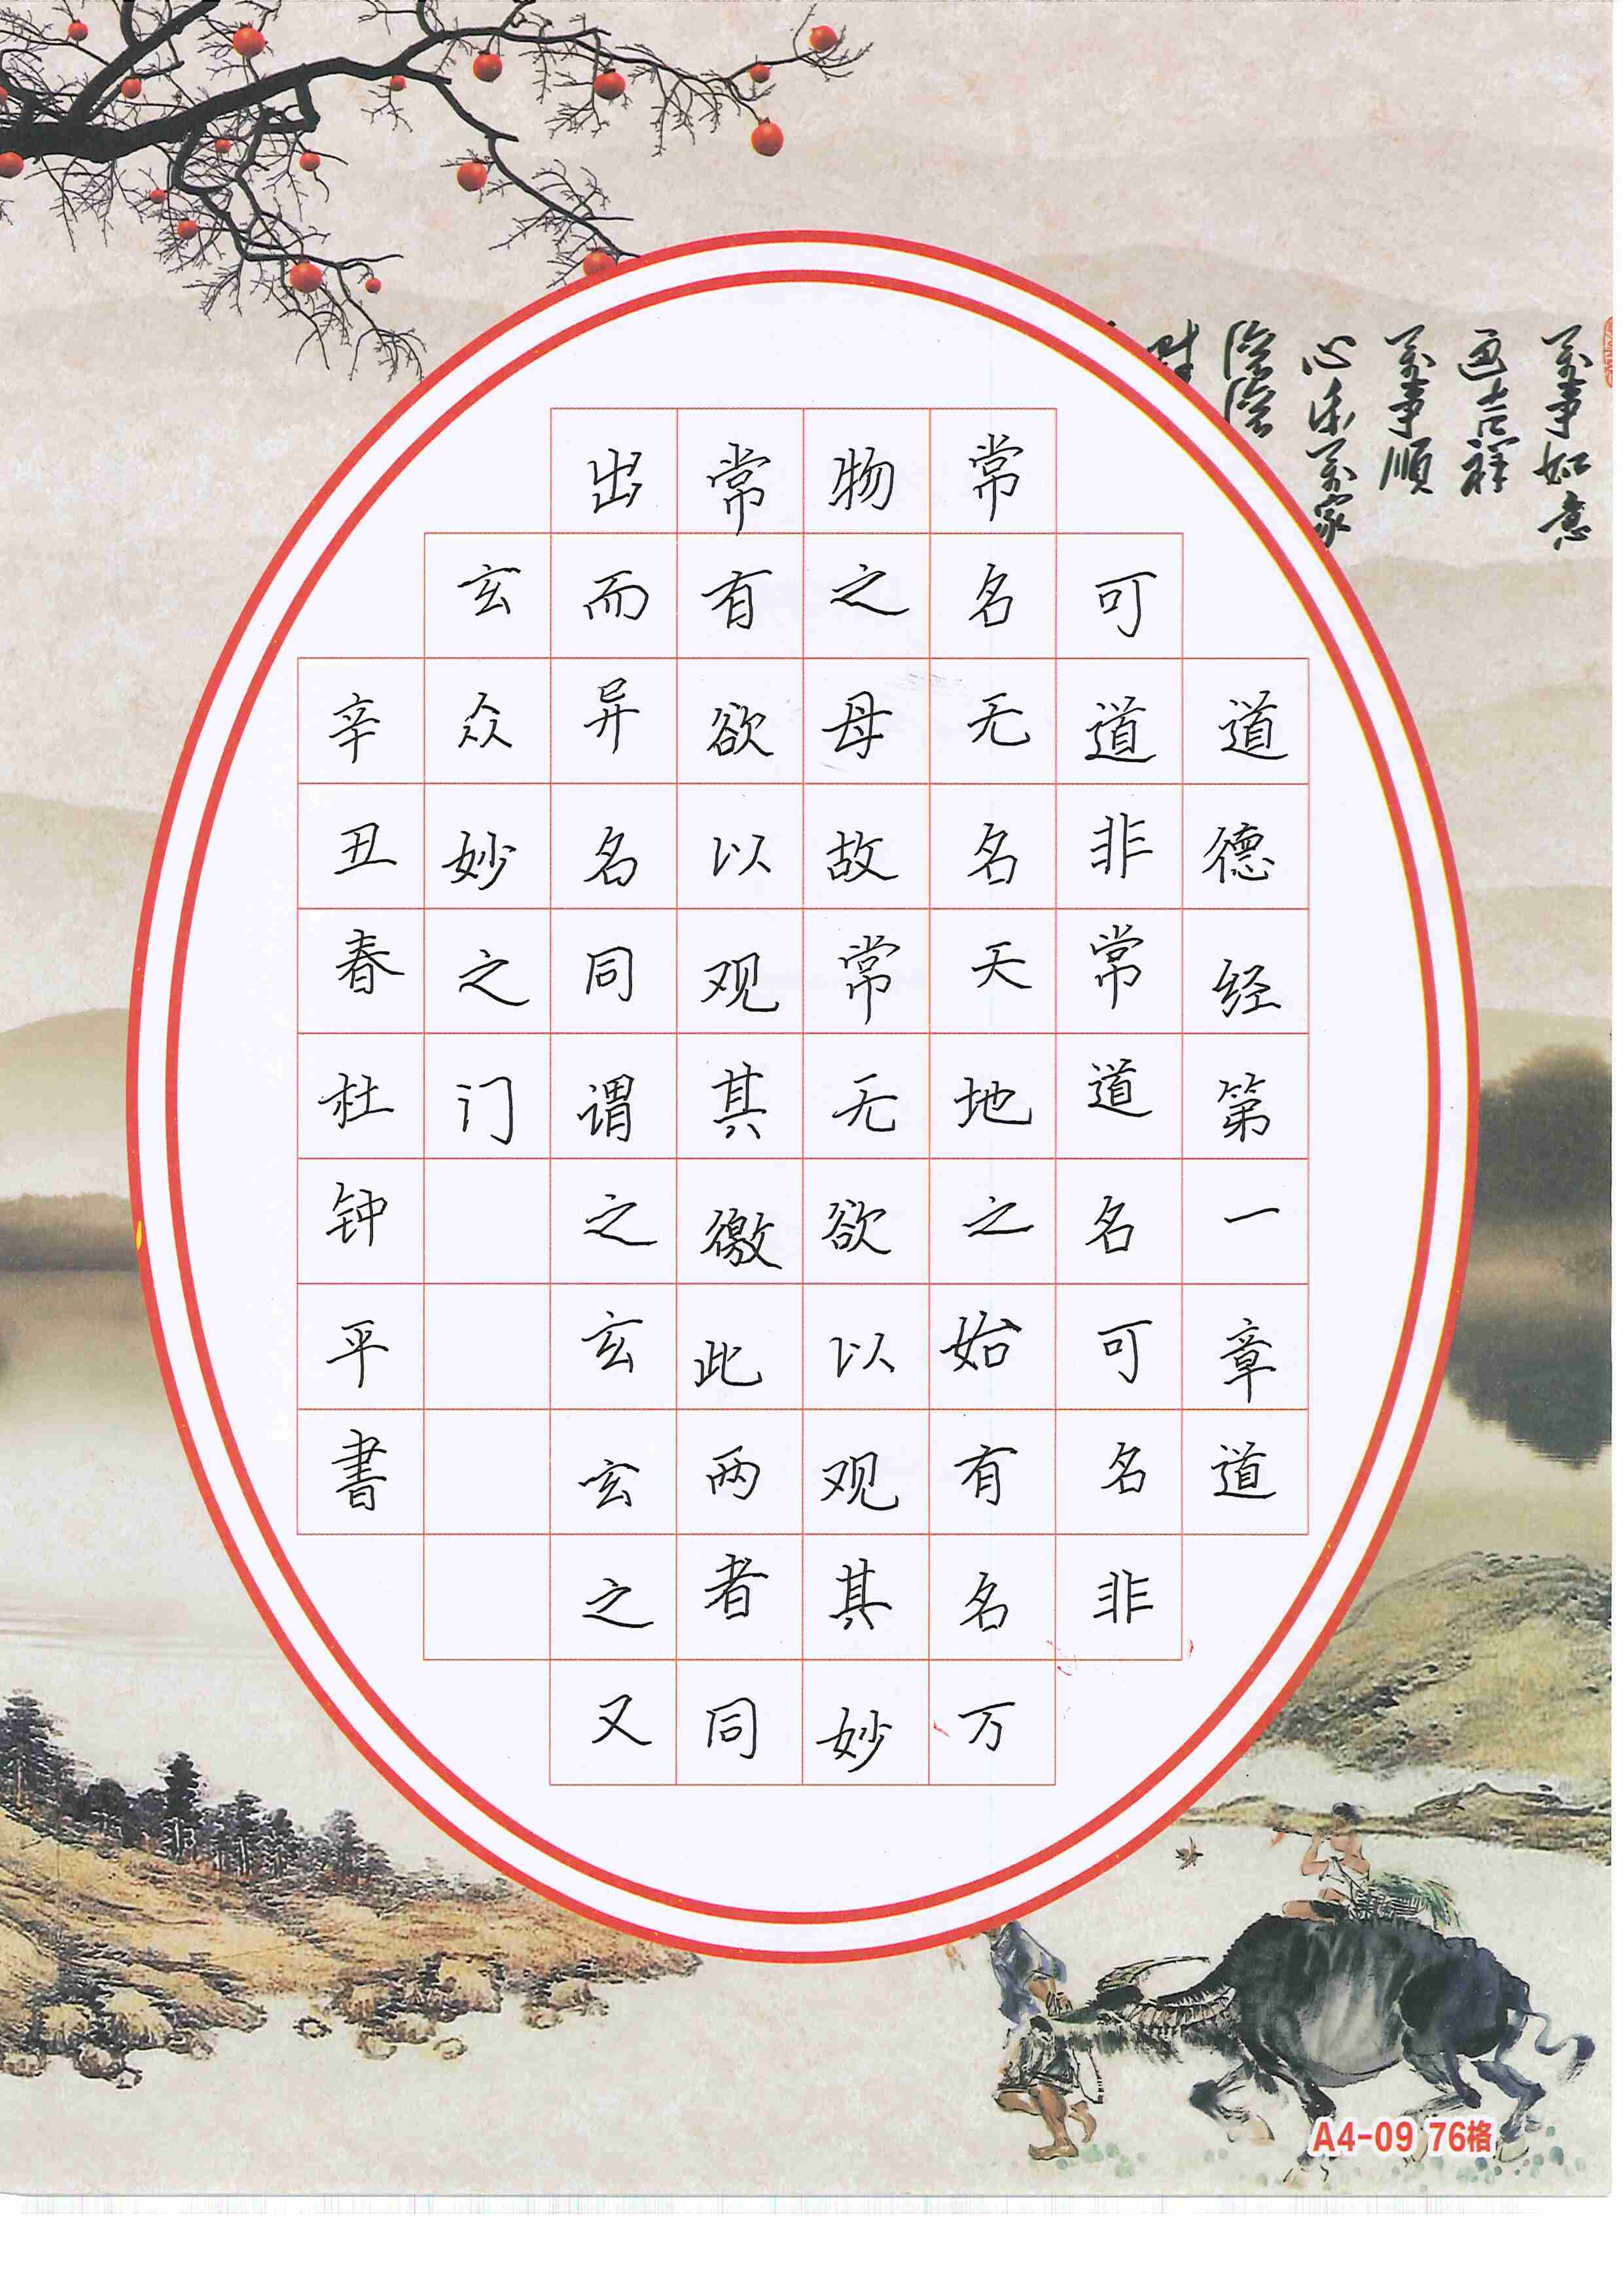 道德经第一章道
可道非常道名可名非
常名无名天地之始有名万
物之母故常无欲以观其妙
常有欲以观其徼此两者同
出而异名同谓之玄玄之又
玄众妙之门
辛丑春杜钟平書
万事如意
画吉祥
万事顺
心乐万家
A4-09 76格